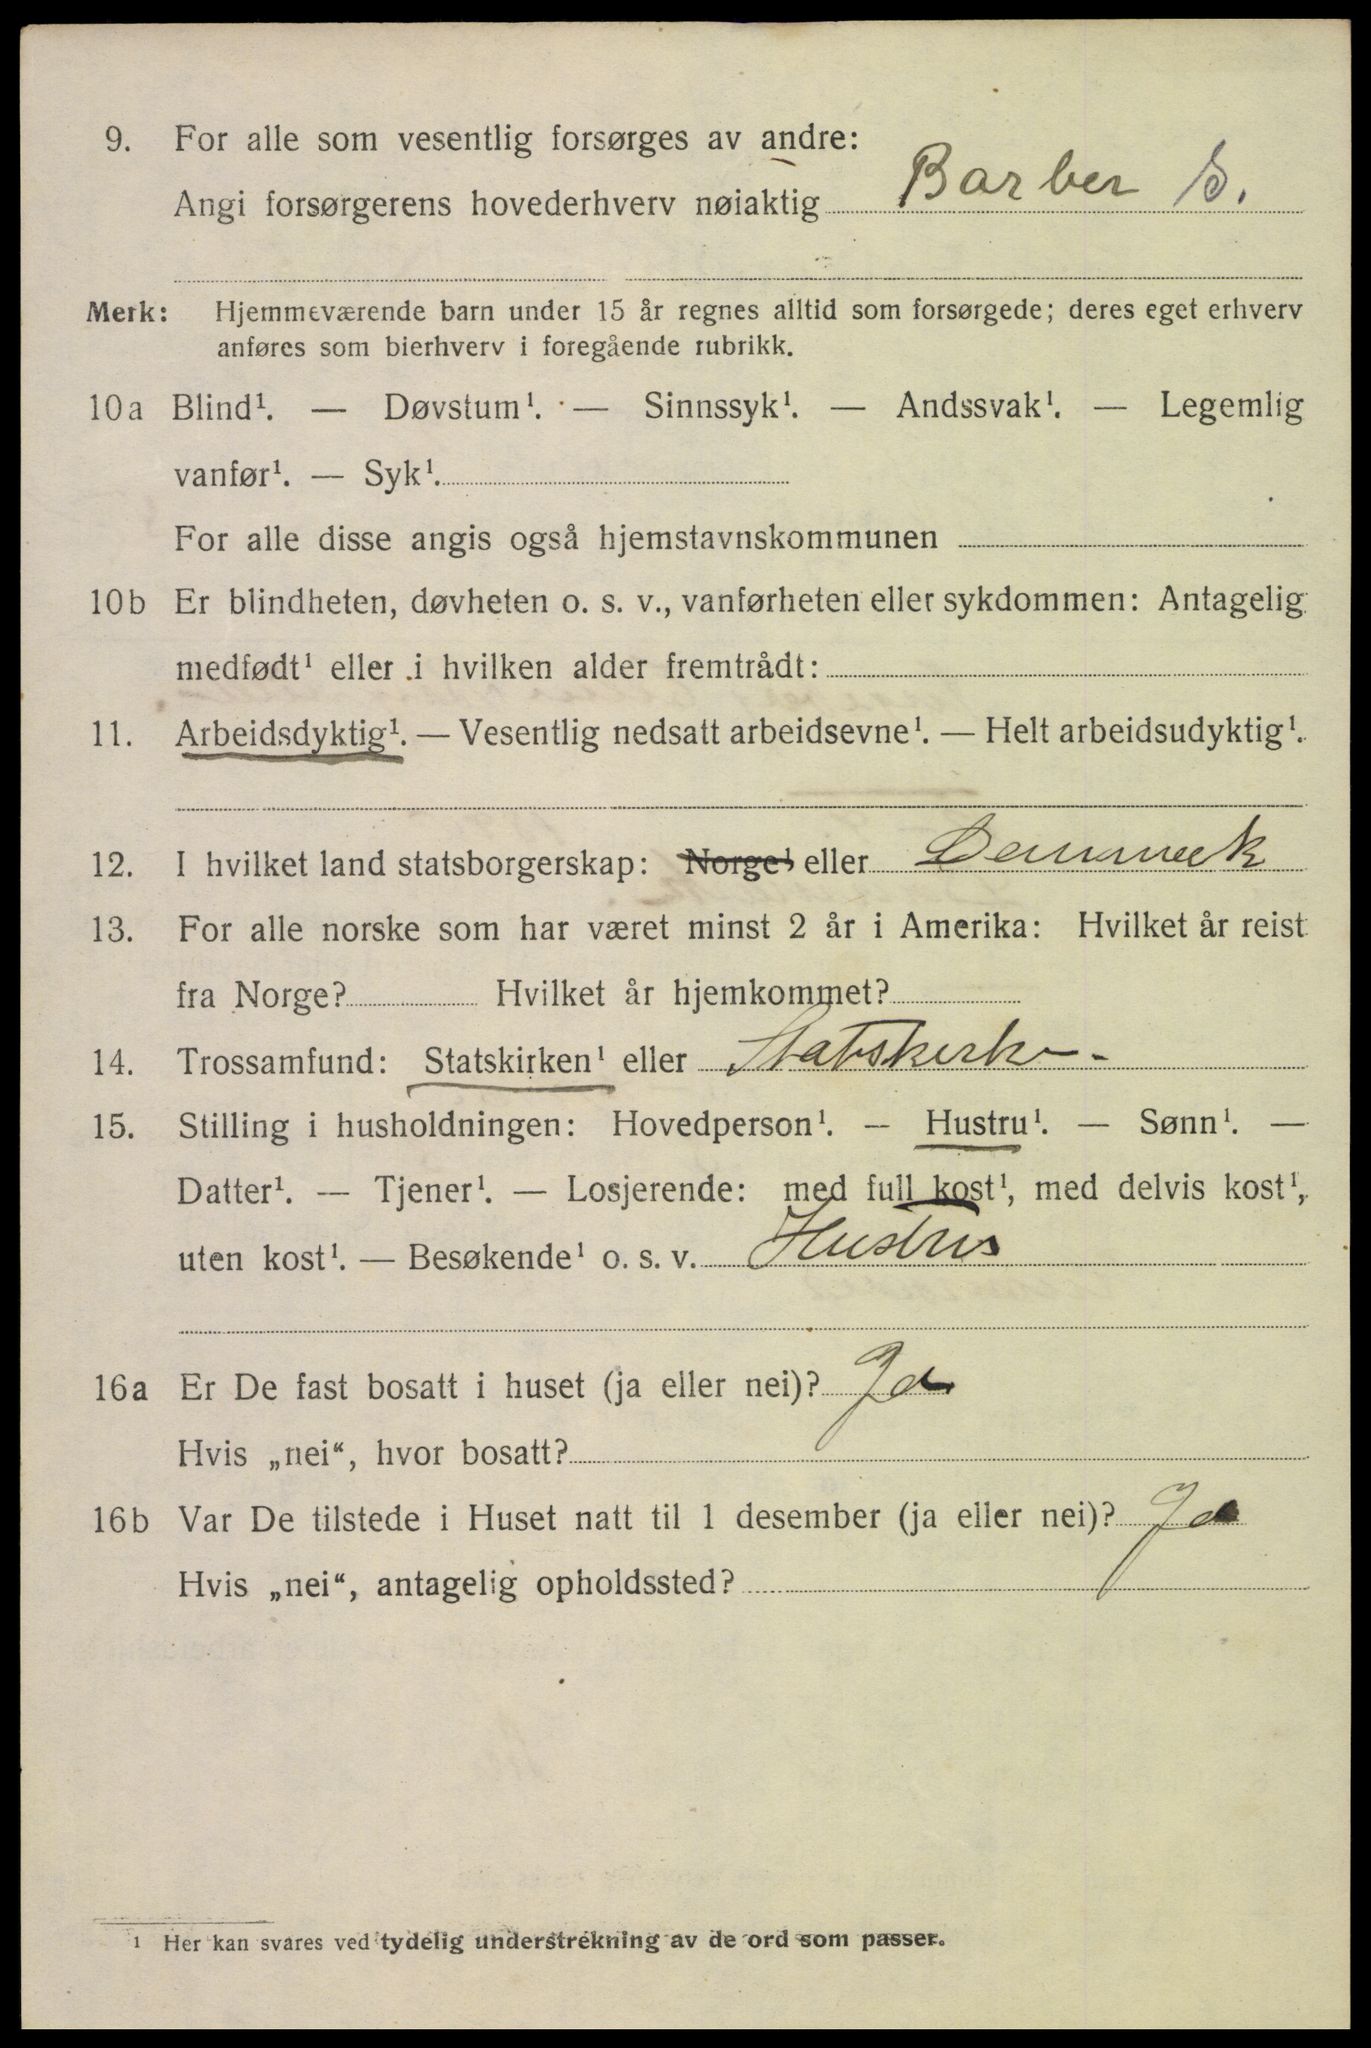 9. For alle som vesentlig forsørges av andre:
Angi forsørgerens hovederhverv nøiaktig Barber S.
Merk: Hjemmeværende barn under 15 år regnes alltid som forsørgede; deres eget erhverv
anføres som bierhverv i foregående rubrikk.
10a Blind¹. — Døvstum¹. — Sinnssyk¹. — Andssvak¹. — Legemlig
vanfør¹. — Syk¹.
For alle disse angis også hjemstavnskommunen
10b Er blindheten, døvheten o. s. v., vanførheten eller sykdommen: Antagelig
medfødt¹ eller i hvilken alder fremtrådt:
11. Arbeidsdyktig¹. — Vesentlig nedsatt arbeidsevne¹. — Helt arbeidsudyktig¹.
12. I hvilket land statsborgerskap: Norge¹ eller Danmark
13. For alle norske som har været minst 2 år i Amerika: Hvilket år reist
fra Norge? Hvilket år hjemkommet?
14. Trossamfund: Statskirken¹ eller Statskirke-
15. Stilling i husholdningen: Hovedperson¹. — Hustru¹. — Sønn¹. —
Datter¹. — Tjener¹. — Losjerende: med full kost¹, med delvis kost¹,
uten kost¹. — Besøkende¹ o. s. v. Hustru
16a Er De fast bosatt i huset (ja eller nei)? Ja
Hvis „nei“, hvor bosatt?
16b Var De tilstede i Huset natt til 1 desember (ja eller nei)? Ja
Hvis „nei“, antagelig opholdssted?
¹ Her kan svares ved tydelig understrekning av de ord som passer.